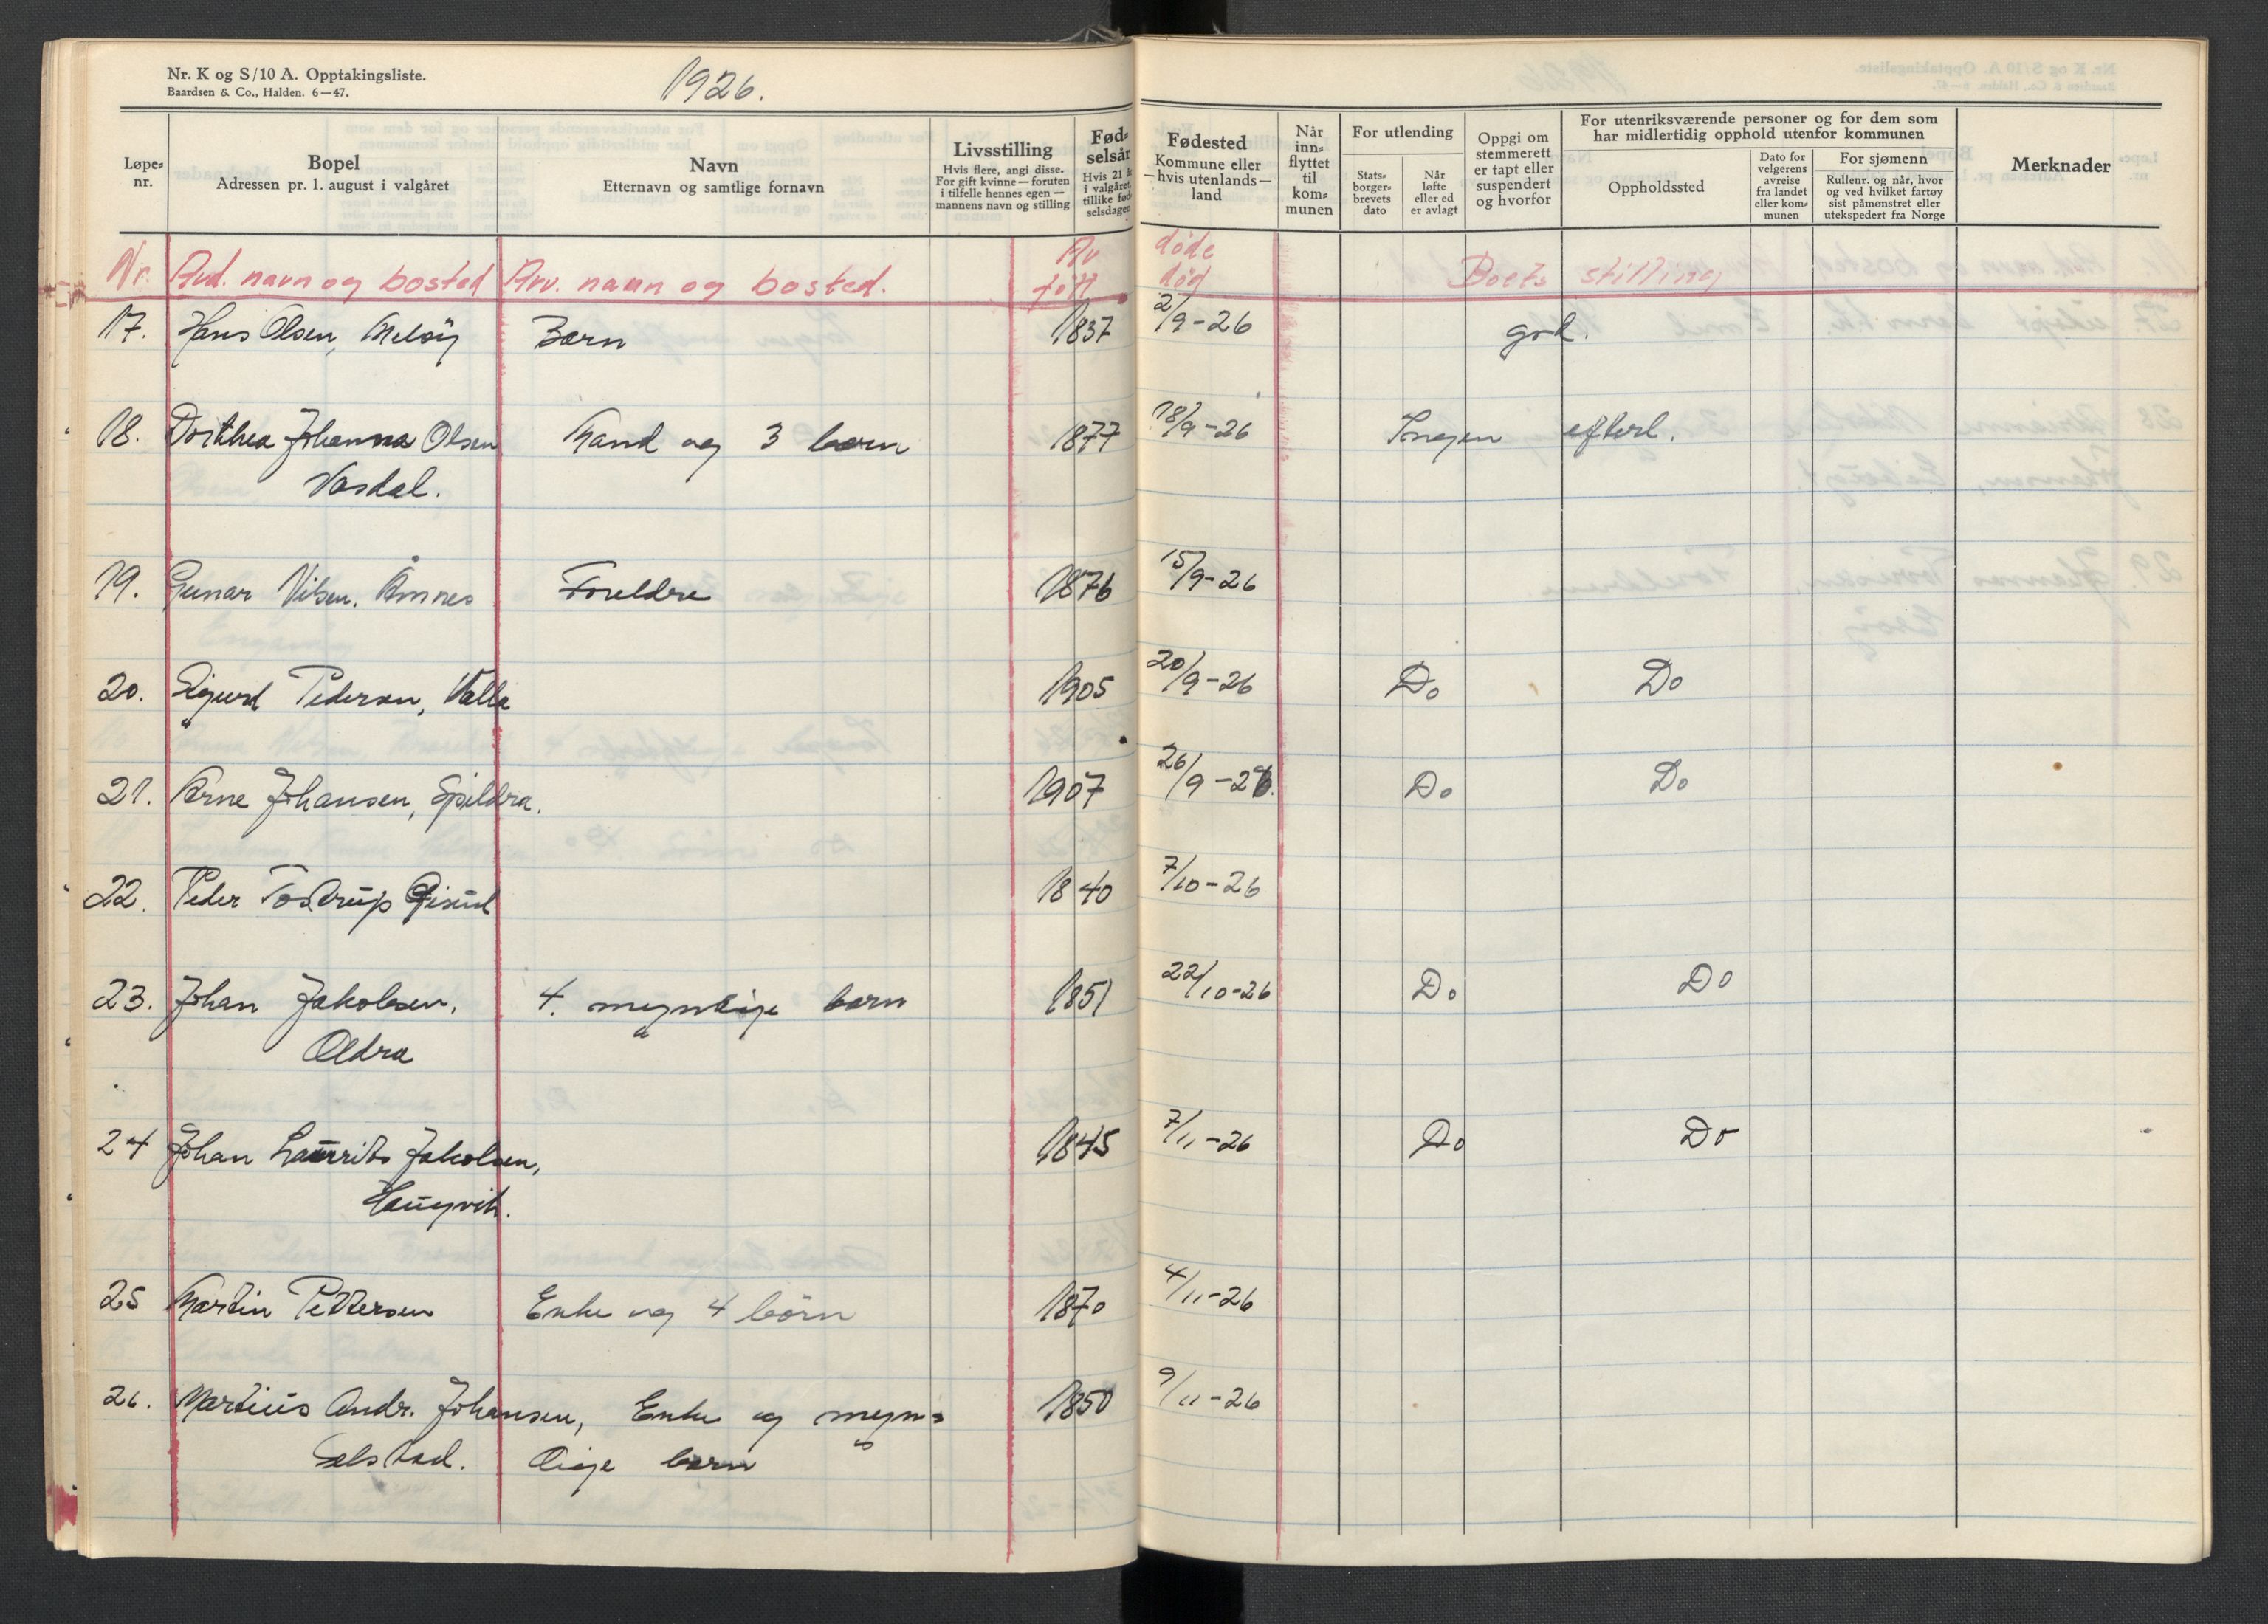 Nr. K og S/10 A. Opptakingsliste.
Baardsen & Co., Halden. 6—47.
1926.
Løpe-nr.
Bopel
Adressen pr. 1. august i valgåret
Navn
Etternavn og samtlige fornavn
Livsstilling
Hvis flere, angi disse.
For gift kvinne — foruten
i tilfelle hennes egen —
mannens navn og stilling
Fød-
selsår
Hvis 21 år
i valgåret,
tillike fød-
selsdagen
Fødested
Kommune eller
— hvis utenlands —
land
Når
inn-
flyttet
til
kom-
munen
For utlending
Stats-
borger-
brevets
dato
Når
løfte
eller ed
er avlagt
Oppgi om
stemmerett
er tapt eller
suspendert
og hvorfor
For utenriksværende personer og for dem som
har midlertidig opphold utenfor kommunen
Oppholdssted
Dato for
velgerens
avreise
fra landet
eller kom-
munen
For sjømenn
Rullenr. og når, hvor
og ved hvilket fartøy
sist påmønstret eller
utekspedert fra Norge
Merknader
Av døde
Nr. Avd. navn og bosted Arv. navn og bosted. født død Boets stilling
17. Hans Olsen, Meløy Barn 1837 2/9-26 god.
18. Dorthea Johanna Olsen Mand og 3 barn 1877 18/9-26 Ingen efterl.
Vasdal.
19. Gunar Nilsen. Åmnes Foreldre 1876 15/9-26
20. Sigurd Pedersen, Valla 1905 20/9-26 Do Do
21. Arne Johansen, Spildra. 1907 26/9-26. Do Do
22. Peder Tostrup 1840 7/10-26
23. Johan Jakobsen, 4. myndige barn 1851 22/10-26 Do Do
Oldra
24 Johan Laurits Jakobsen, 1845 7/11-26 Do Do
Haugvik.
25 Martin Pettersen Enke og 4 børn 1870 4/11-26
26. Martius Andr. Johansen, Enke og myn- 1850 9/11-26
Selstad. dige barn